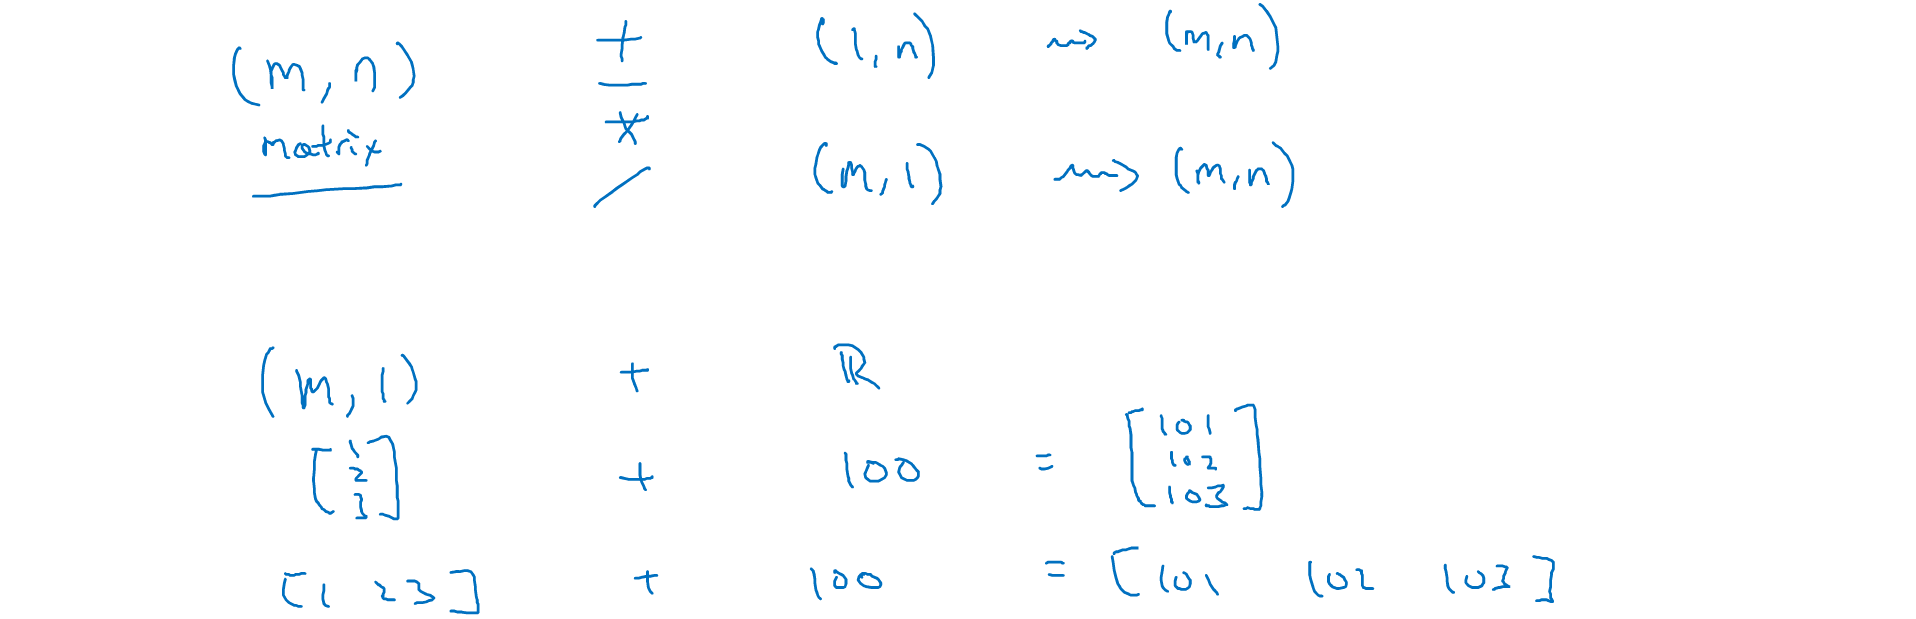 (m, n) + (1, n) ⇝ (m, n)
matrix
-
*
/ (m, 1) ⇝ (m, n)
(m, 1) + ℝ
[1 2 3] + 100 = [101 102 103]
[1 2 3] + 100 = [101 102 103]